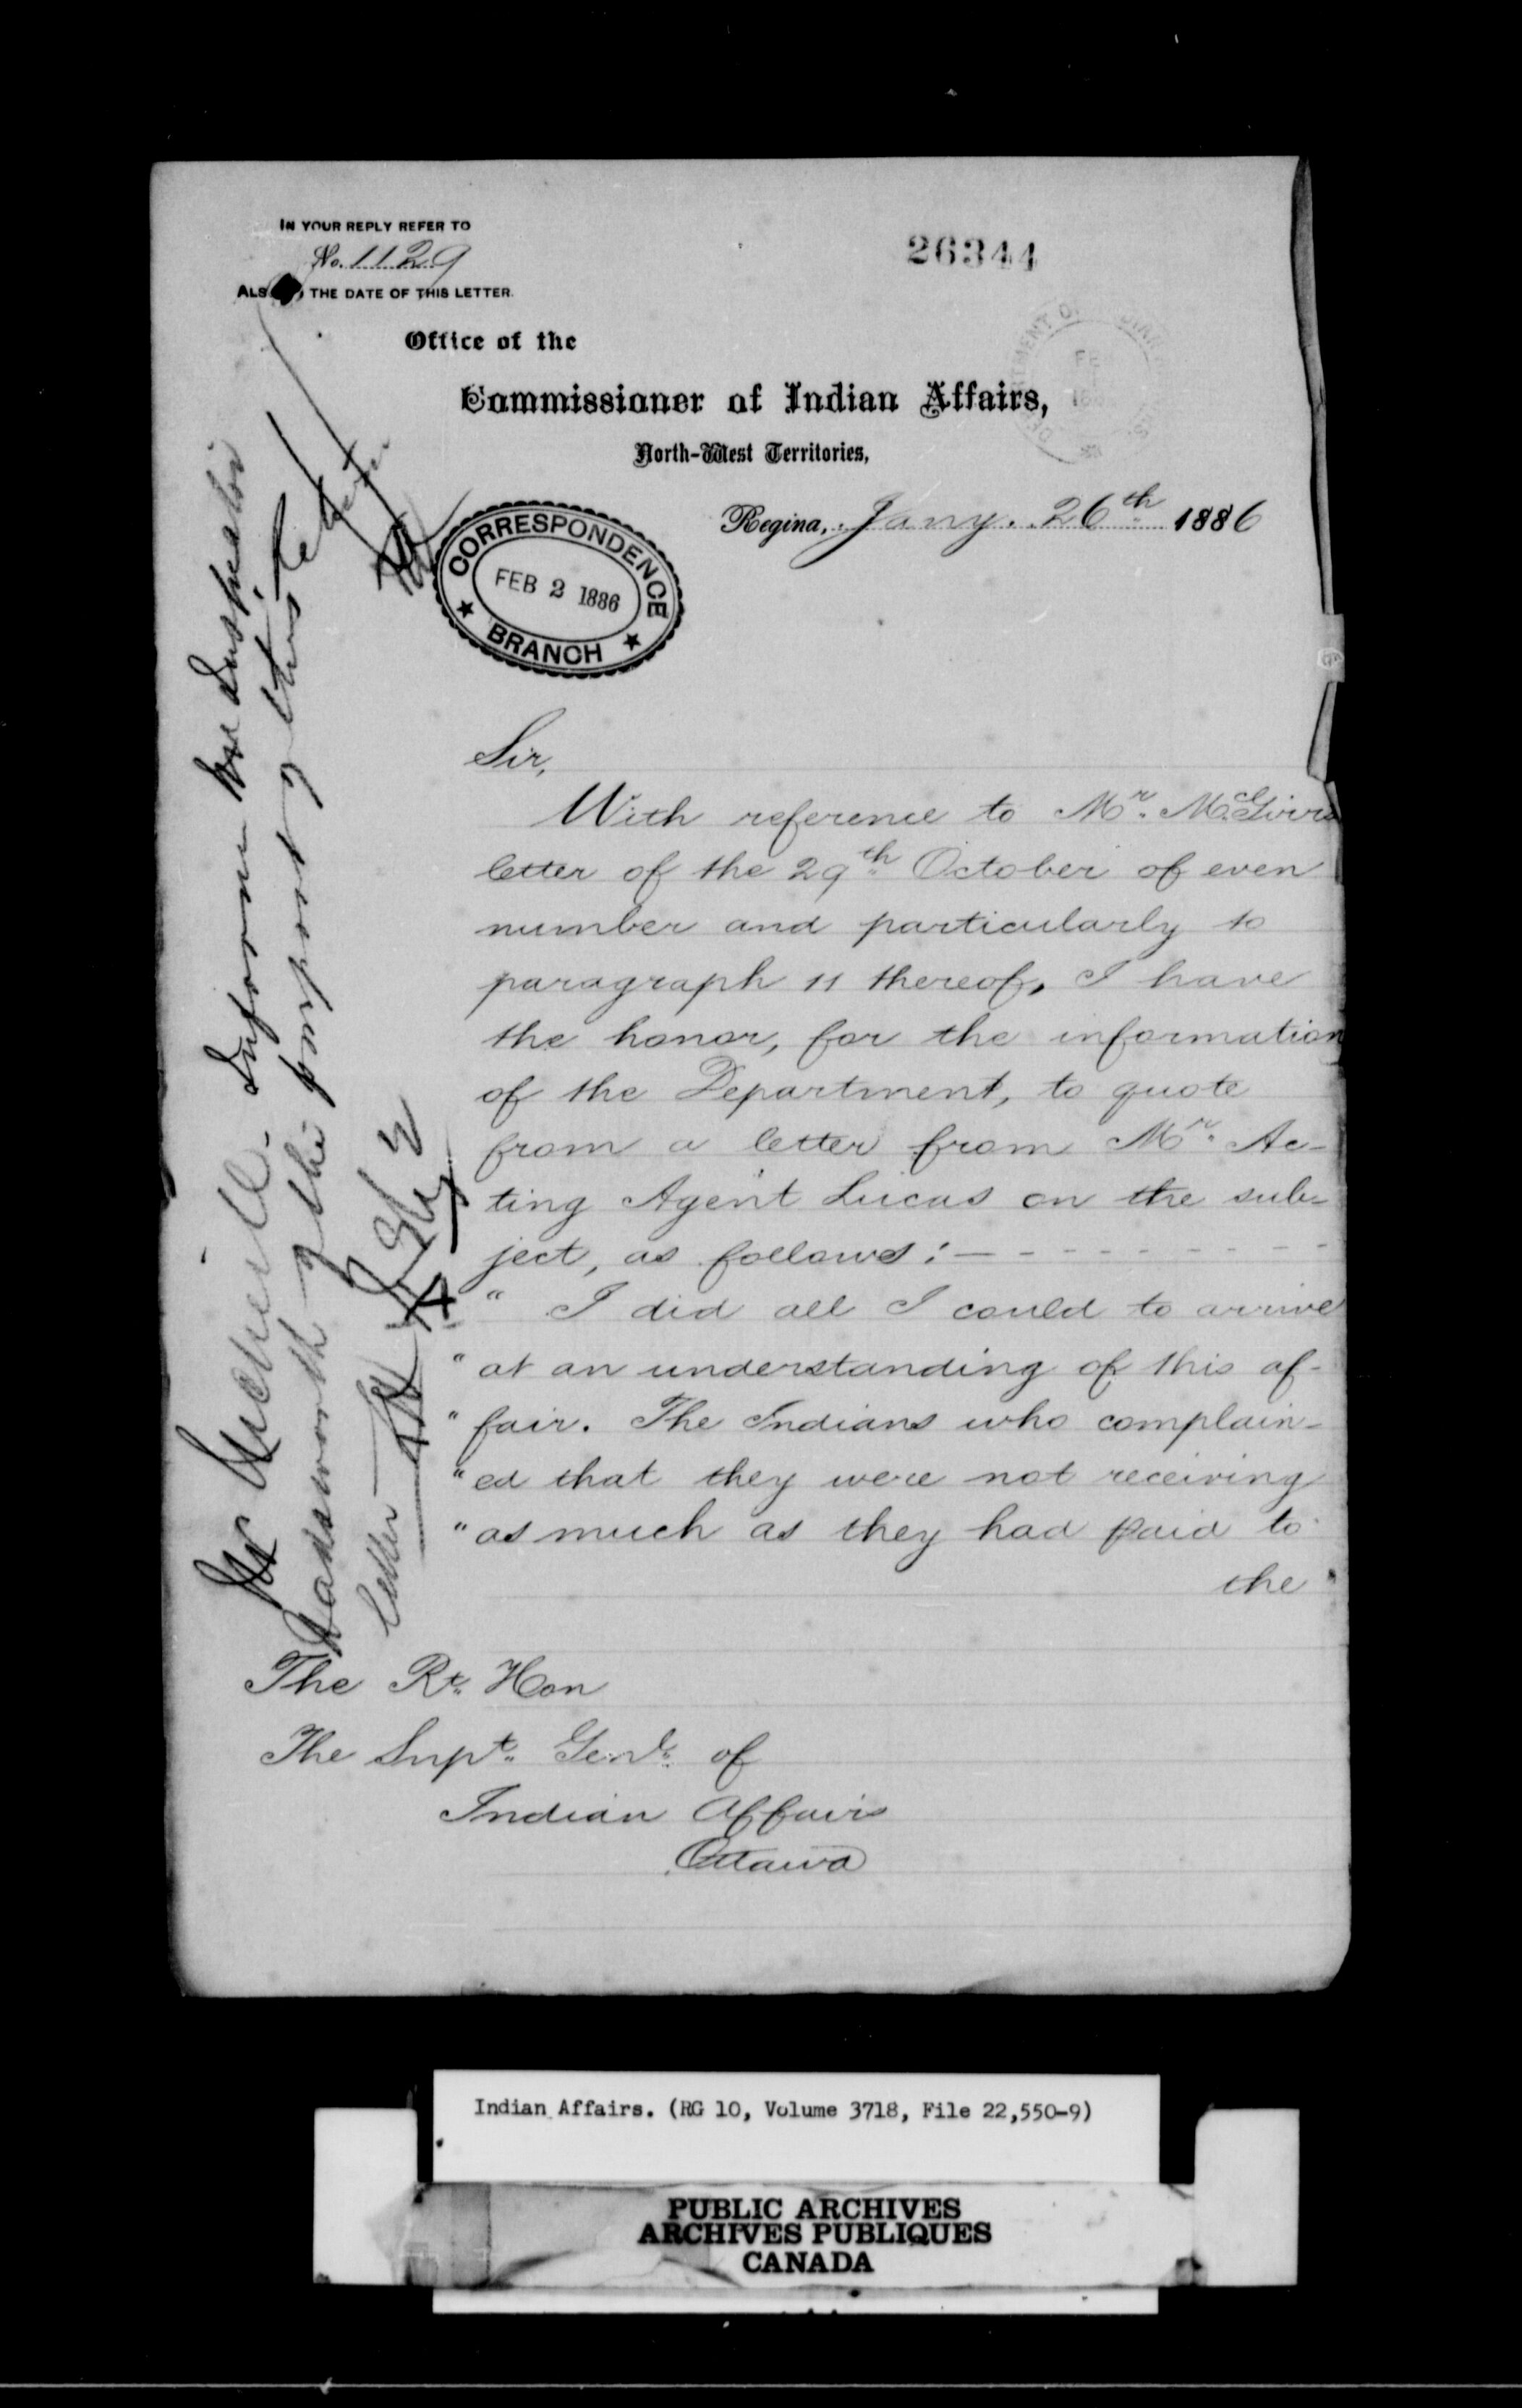 IN YOUR REPLY REFER TO
No. 1129
ALSO THE DATE OF THIS LETTER.
26344
Office of the
Commissioner of Indian Affairs,
North-West Territories,
Regina, Jany. 26th 1886
CORRESPONDENCE
FEB 2 1886
BRANCH
Sir,
With reference to Mr. McGirrs
letter of the 29th October of even
number and particularly to
paragraph 11 thereof, I have
the honor, for the information
of the Department, to quote
from a letter from Mr. Ac-
ting Agent Lucas on the sub-
ject, as follows:—
" I did all I could to arrive
" at an understanding of this af-
" fair. The Indians who complain-
" ed that they were not receiving
" as much as they had paid to
the
The Rt. Hon
The Supt. Genl. of
Indian Affairs
Ottawa
Inform Inspector
Wadsworth of the purport of this
letter
Indian Affairs. (RG 10, Volume 3718, File 22,550-9)
PUBLIC ARCHIVES
ARCHIVES PUBLIQUES
CANADA